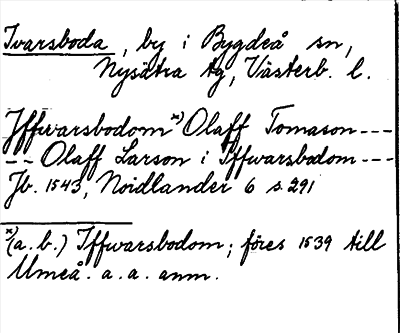 Ivarsboda, by i Bygdeå sn,
Nysätra tg, Västerb. l.
Jffwarsbodom x) Olaff Tomason ---
-- Olaff Larson i Iffwarsbodom ---
Jb. 1543, Nordlander 6 s. 291
x) (a. b.) Iffwarsbodom; föres 1539 till
Umeå. a. a. anm.